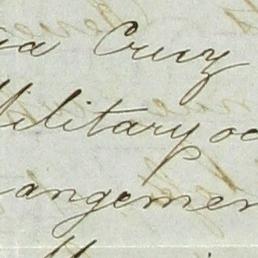 ga Cruz
Military oc
angemen